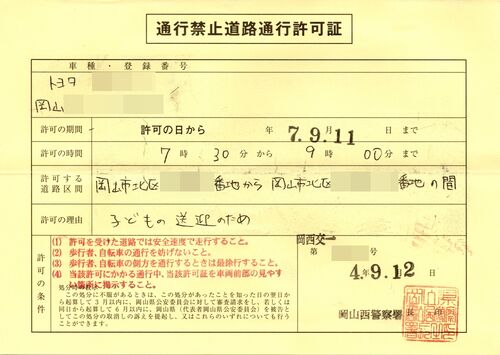 通行禁止道路通行許可証
車種・登録番号
トヨタ
岡山
許可の期間 許可の日から 年 7.9.11 日まで
許可の時間 7時30分から 9時00分まで
許可する道路区間 岡山市北区 番地から 岡山市北区 番地の間
許可の理由 子どもの送迎のため
許可の条件
(1) 許可を受けた道路では安全速度で走行すること。
(2) 歩行者、自転車の通行を妨げないこと。
(3) 歩行者、自転車の側方を通行するときは最徐行すること。
(4) 当該許可にかかる通行中、当該許可証を車両前部の見やすい箇所に掲示すること。
この処分に不服があるときは、この処分があったことを知った日の翌日から起算して3月以内に、岡山県公安委員会に対して審査請求をし、若しくは同日から起算して6月以内に、岡山県（代表者岡山県公安委員会）を被告としてこの処分の取消しの訴えを提起し、又はこれらのいずれについても行うことができます。
岡西交一
号
4.9.12
岡山西警察署長